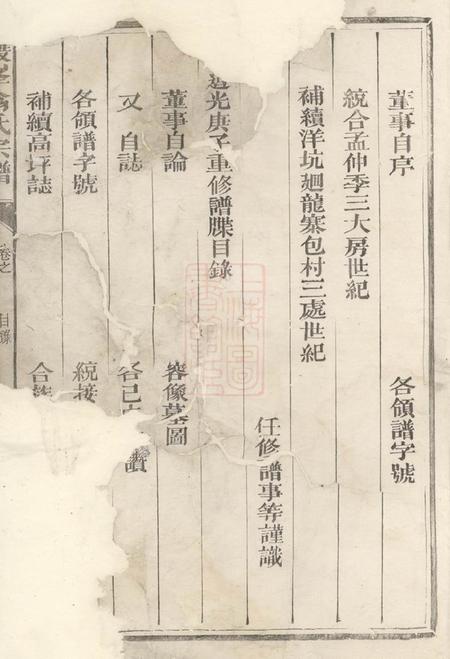 董事自序 各領譜字號
統合孟仲季三大房世紀
補續洋坑廻龍寨包村三處世紀
任修譜事等謹識
道光庚子重修譜牒目錄
董事自論 容像墓圖
又自誌 各已
各領譜字號 統接
補續高坪誌 合
氏宗譜 卷之 目錄